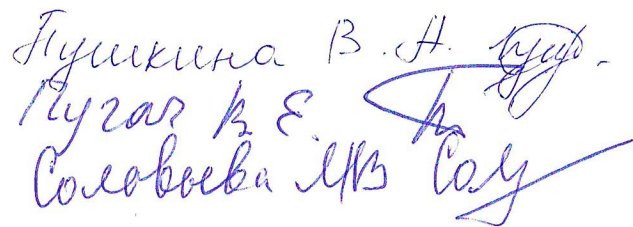 Пушкина В. А.
Пугач В. Е.
Соловьева МВ